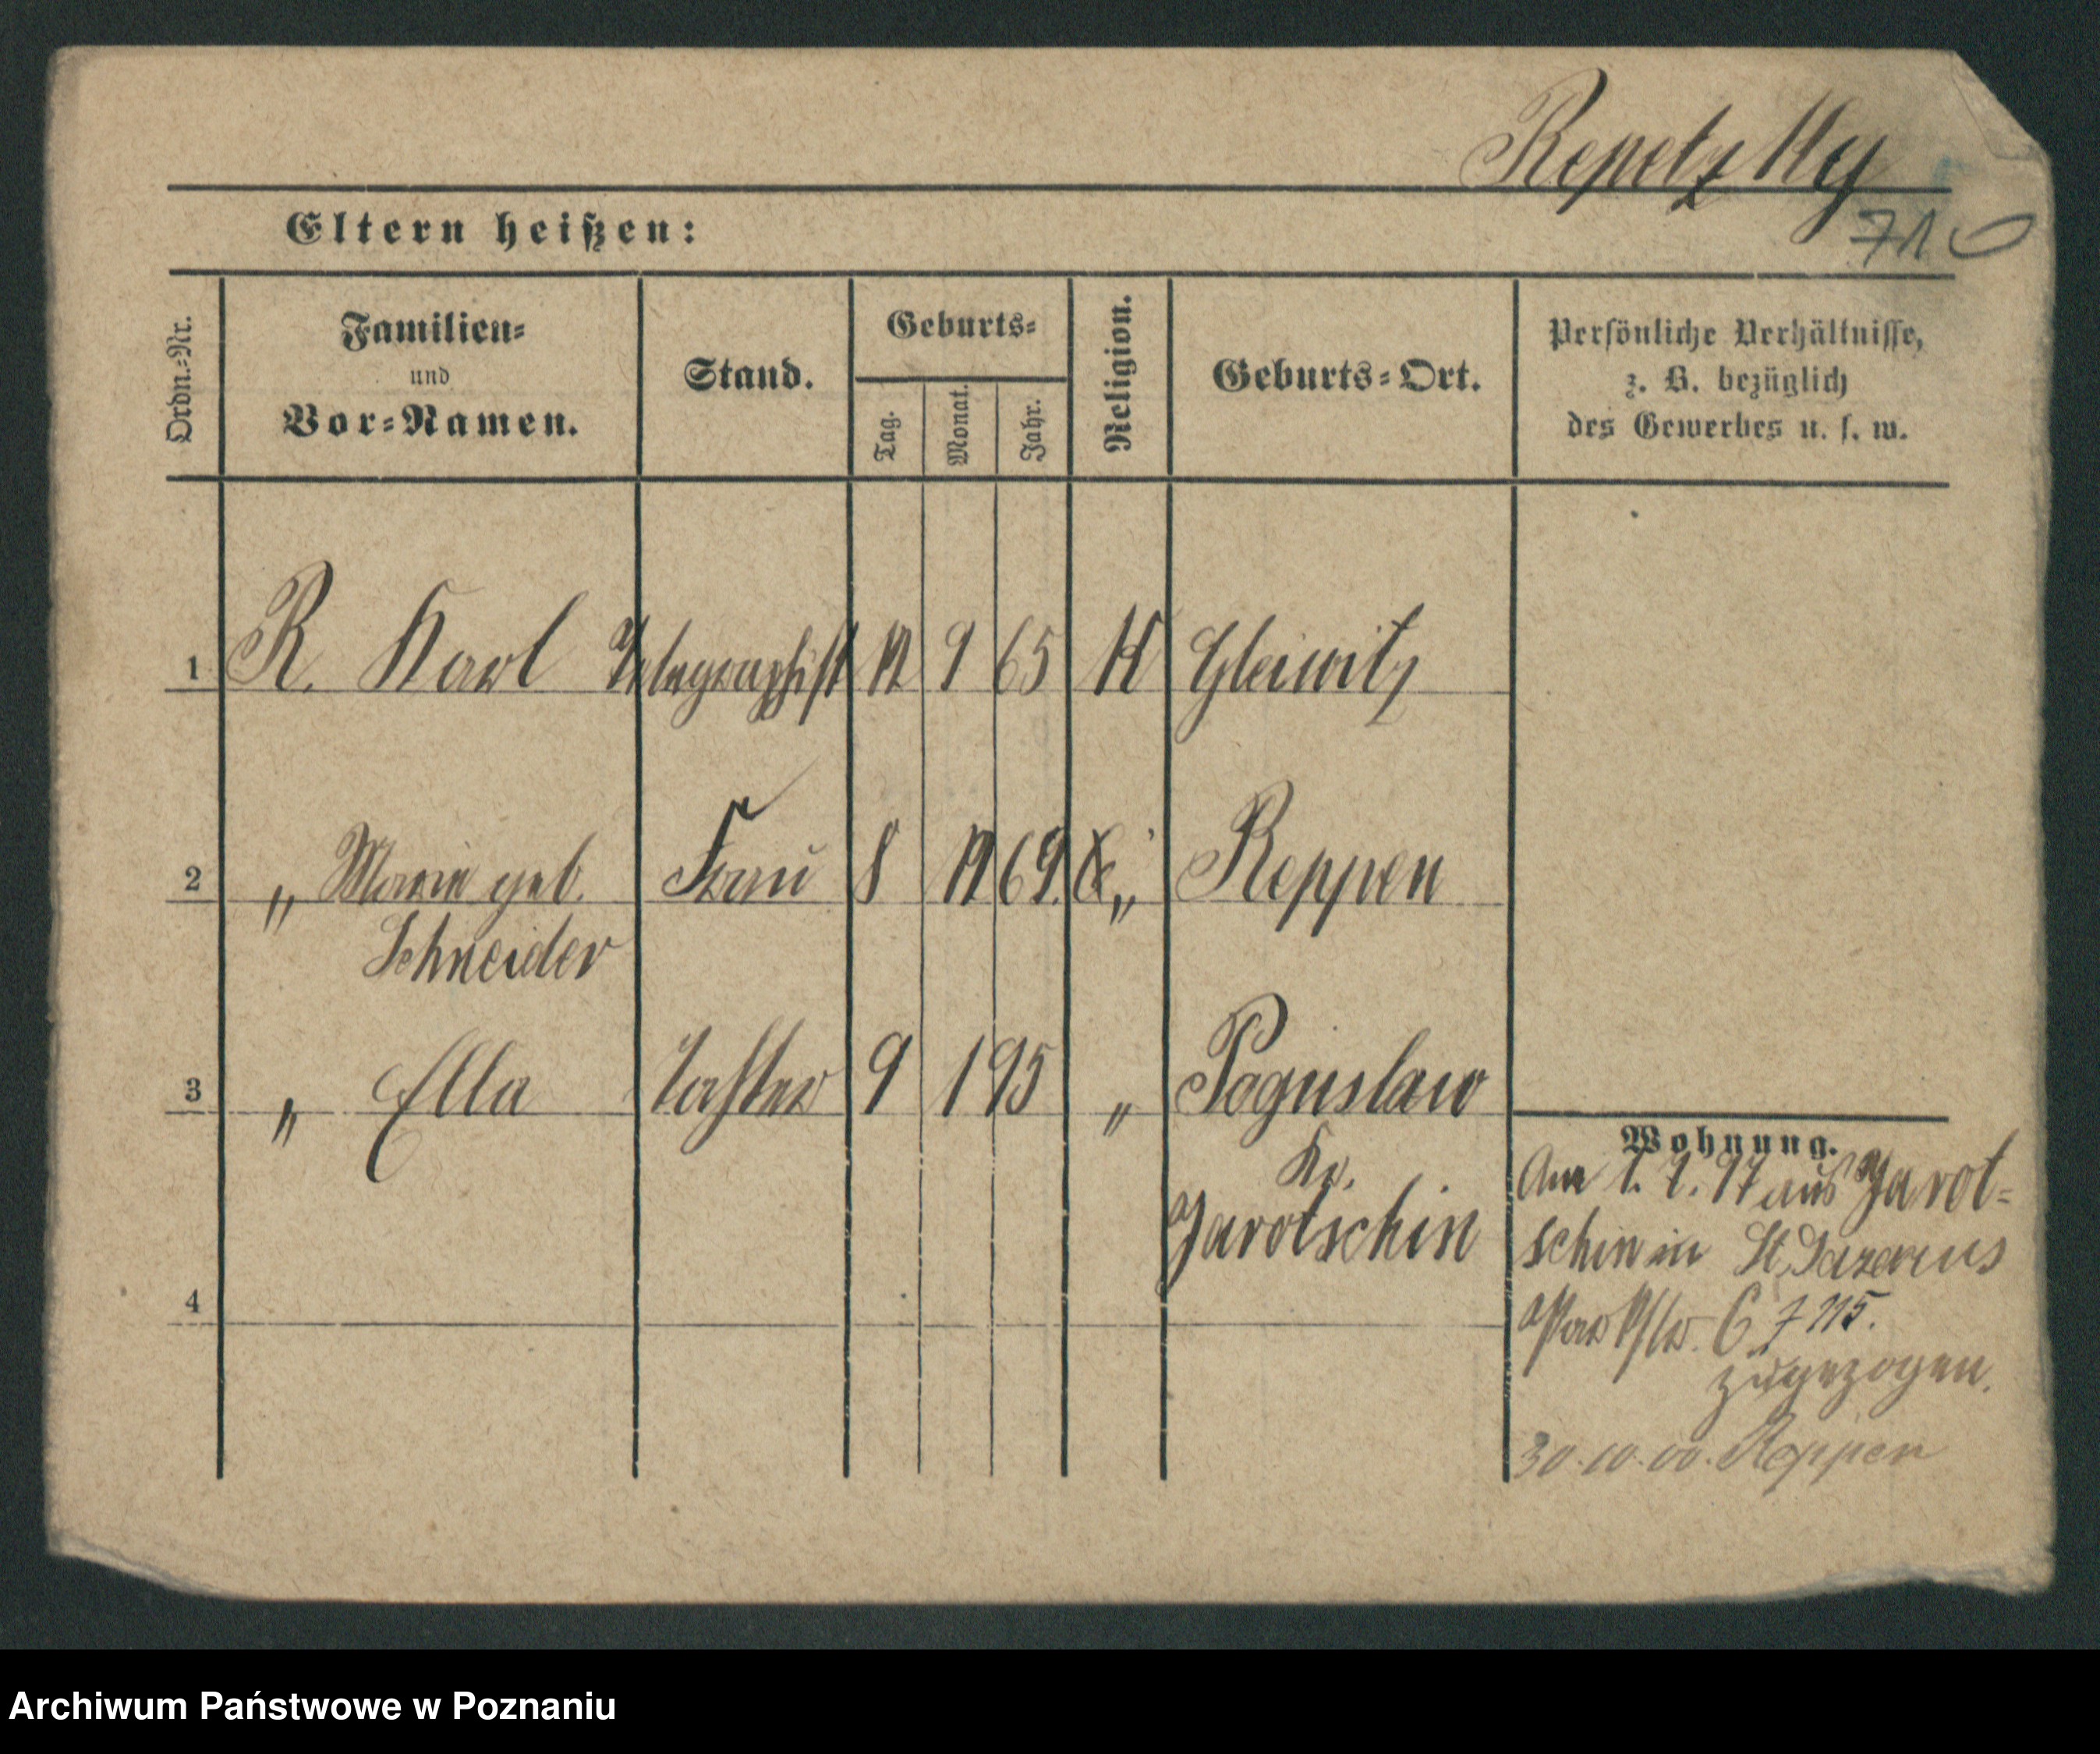 Repetzky
71
Eltern heißen:
Ordn.-Nr.
Familien-
und
Vor-Namen.
Stand.
Geburts-
Tag.
Monat.
Jahr.
Religion.
Geburts-Ort.
Persönliche Verhältnisse,
z. B. bezüglich
des Gewerbes u. s. w.
1 R. Karl Telegraphist 12 9 65 K Gleiwitz
2 „ Marie geb. Frau 8 12 69. „ Reppen
Schneider
3 „ Ella Tochter 9 1 95 „ Poguslaw
Kr.
Jarotschin
4
Wohnung.
Am 1. 7. 97 aus Jarot-
schin in St. Lazarus
Park Str. 6
zugezogen.
30.10.00. Reppen
Archiwum Państwowe w Poznaniu